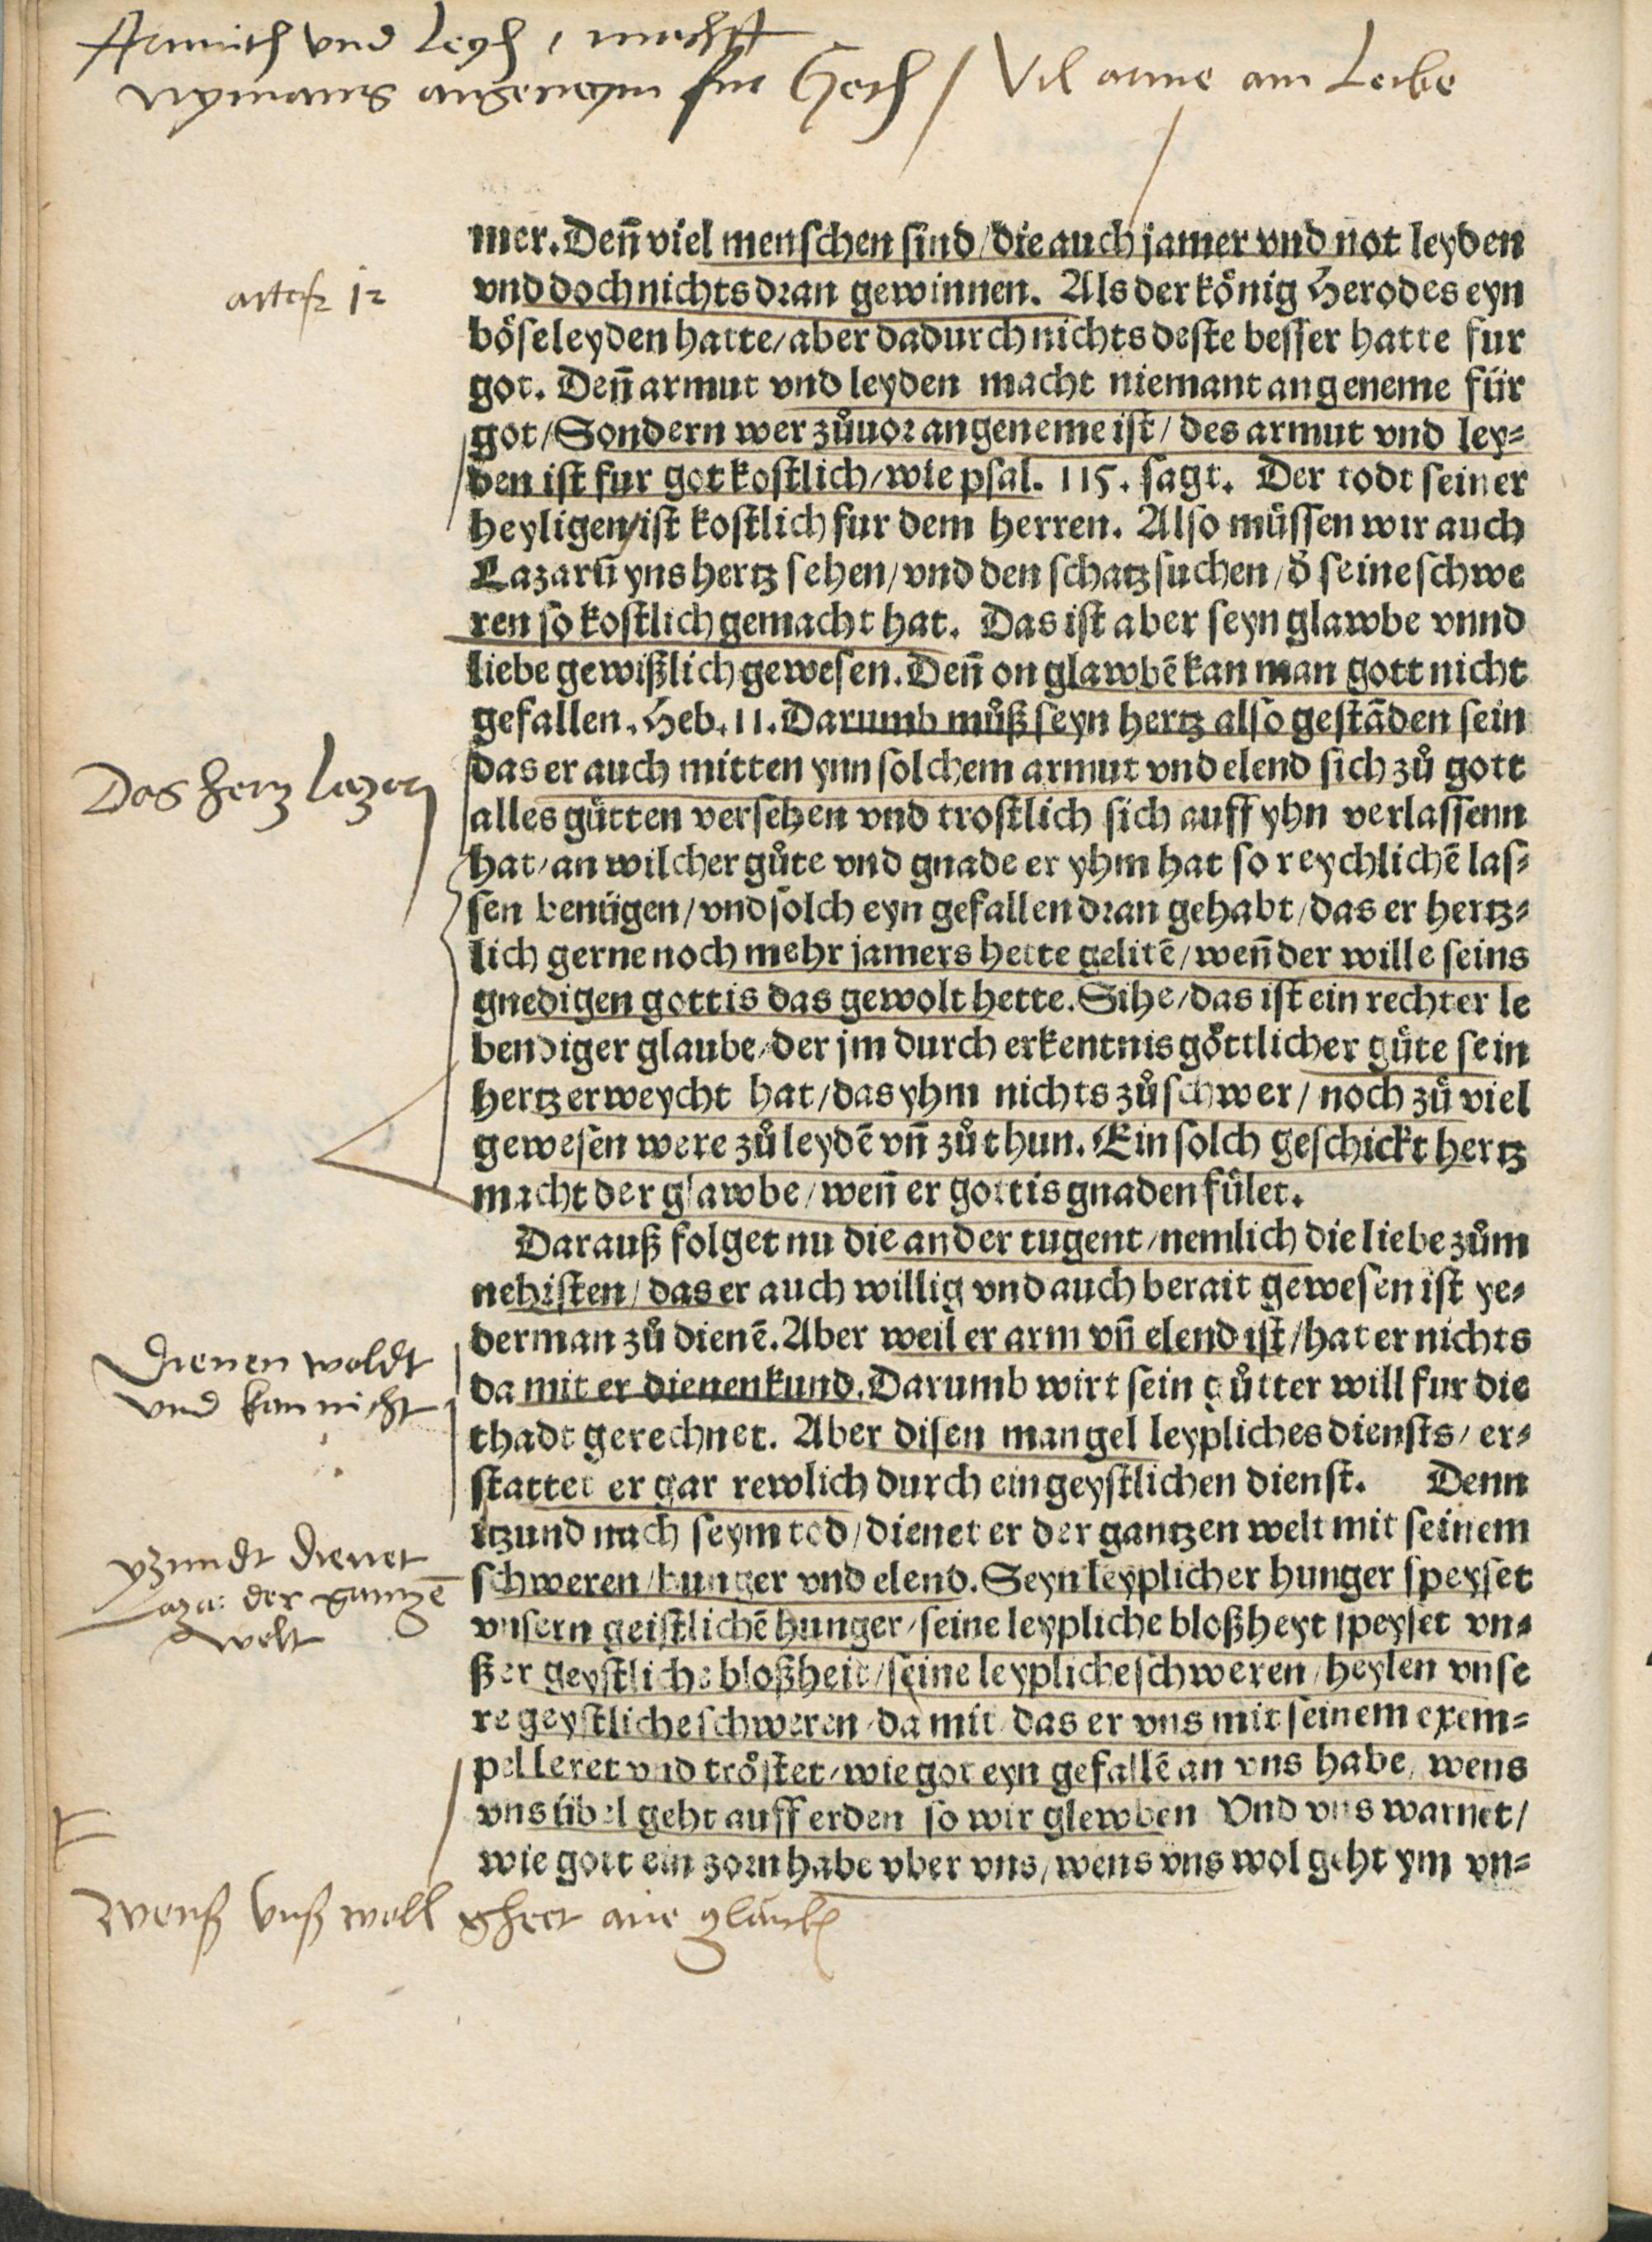 Armuth vnd Leyd / macht
nymants angeneym fur Goth / Vil arme am Leibe
mer. Deñ viel menschen sind / die auch jamer vnd not leyden
actos 12
vnd doch nichts dran gewinnen. Als der könig Herodes eyn
böse leyden hatte / aber dadurch nichts deste besser hatte fur
got. Deñ armut vnd leyden macht niemant angeneme für
got / Sondern wer zůuor angeneme ist / des armut vnd ley⸗
den ist fur got kostlich / wie psal. 115. sagt. Der todt seiner
heyligen / ist kostlich fur dem herren. Also müssen wir auch
Lazarū yns hertz sehen / vnd den schatz suchen / d̕ seine schwe
ren so kostlich gemacht hat. Das ist aber seyn glawbe vnnd
liebe gewißlich gewesen. Deñ on glawbē kan man gott nicht
gefallen. Heb. 11. Darumb můß seyn hertz also gestāden sein
Das hertz Lazari
das er auch mitten ynn solchem armut vnd elend sich zů gott
alles gütten versehen vnd trostlich sich auff yhn verlassenn
hat / an wilcher gůte vnd gnade er yhm hat so reychlichē las⸗
sen benügen / vnd solch eyn gefallen dran gehabt / das er hertz⸗
lich gerne noch mehr jamers hette gelitē / weñ der wille seins
gnedigen gottis das gewolt hette. Sihe / das ist ein rechter le
bendiger glaube / der jm durch erkentnis göttlicher güte sein
hertz erweycht hat / das yhm nichts zů schwer / noch zů viel
gewesen were zů leydē vñ zů thun. Ein solch geschickt hertz
macht der glawbe / weñ er gottis gnaden fület.
Darauß folget nu die ander tugent / nemlich die liebe zům
nehisten / das er auch willig vnd auch berait gewesen ist ye⸗
derman zů dienē. Aber weil er arm vñ elend ist / hat er nichts
Dienen woldt
vnd kan nicht
da mit er dienen kund. Darumb wirt sein gůtter will fur die
thadt gerechnet. Aber disen mangel leypliches diensts / er⸗
stattet er gar rewlich durch ein geystlichen dienst. Denn
itzund nach seym tod / dienet er der gantzen welt mit seinem
yzundt dienet
Laza: der gantzē
welt
schweren / hunger vnd elend. Seyn leyplicher hunger speyset
vnsern geistlichē hunger / seine leypliche bloßheyt speyset vn⸗
ßer geystliche bloßheit / seine leypliche schweren / heylen vnse
re geystliche schweren / da mit / das er vns mit seinem exem⸗
pel leret vnd tröstet / wie got eyn gefallē an vns habe / wens
vns übel geht auff erden so wir glewben Vnd vns warnet /
wie gott ein zorn habe vber vns / wens vns wol geht ym vn⸗
wenß vnß woll gheet ane glauben